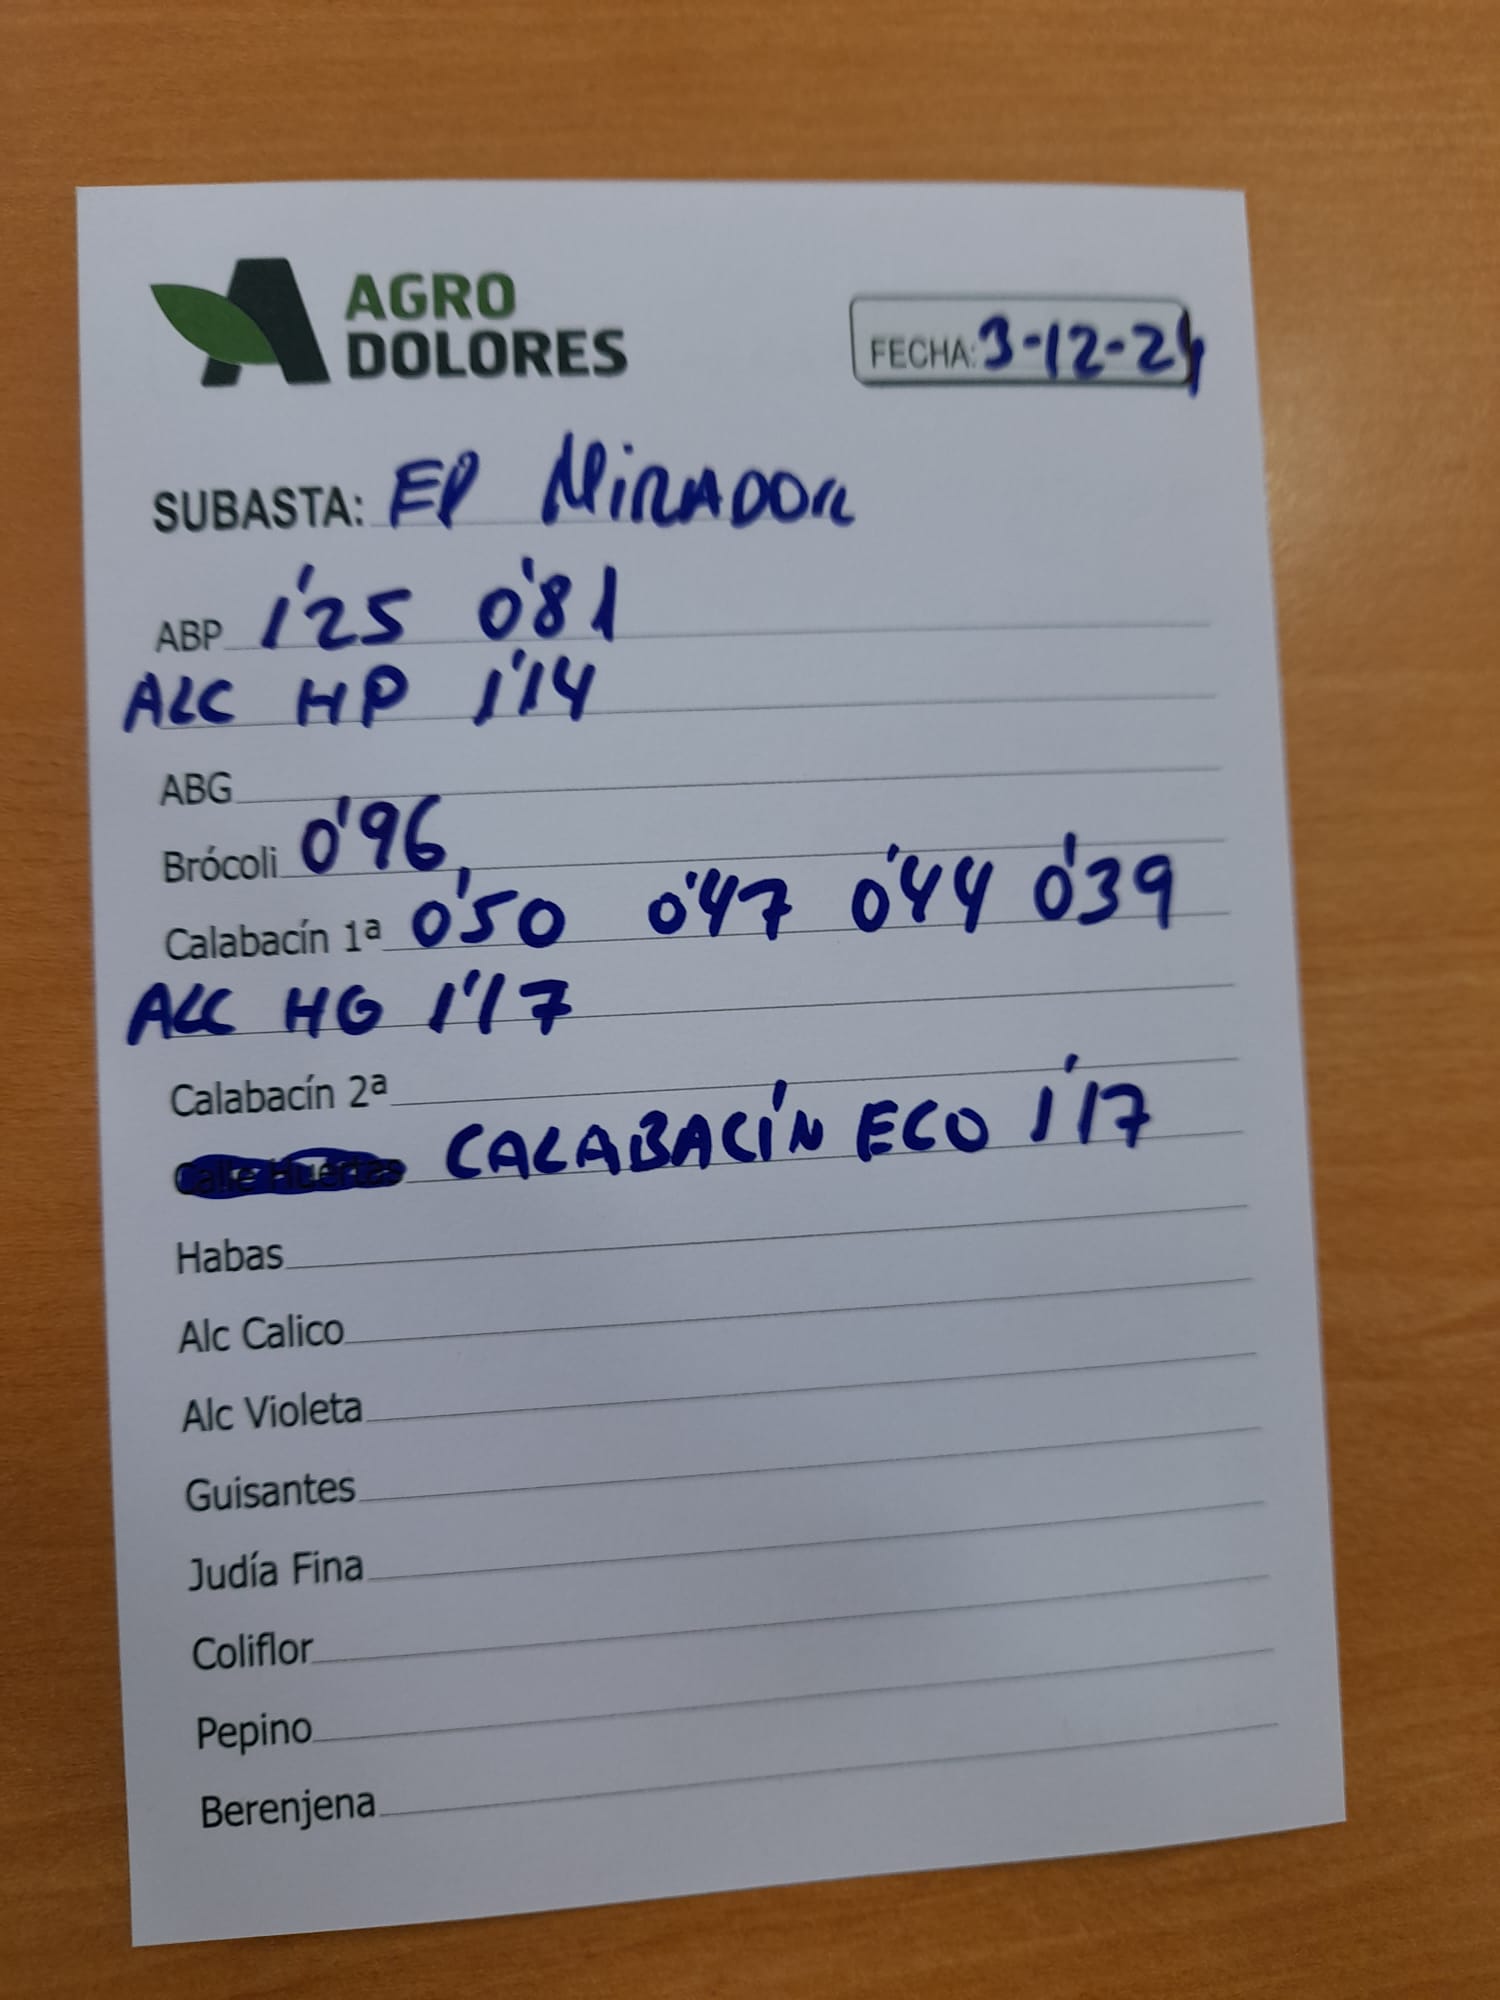 AGRO
DOLORES
FECHA: 3-12-24
SUBASTA: EP MIRADOR
ABP 1'25 0'81
ALC HP 1'14
ABG
Brócoli 0'96
Calabacín 1ª 0'50 0'47 0'44 0'39
ALC HG 1'17
Calabacín 2ª
Calle Huertas CALABACÍN ECO 1'17
Habas
Alc Calico
Alc Violeta
Guisantes
Judía Fina
Coliflor
Pepino
Berenjena